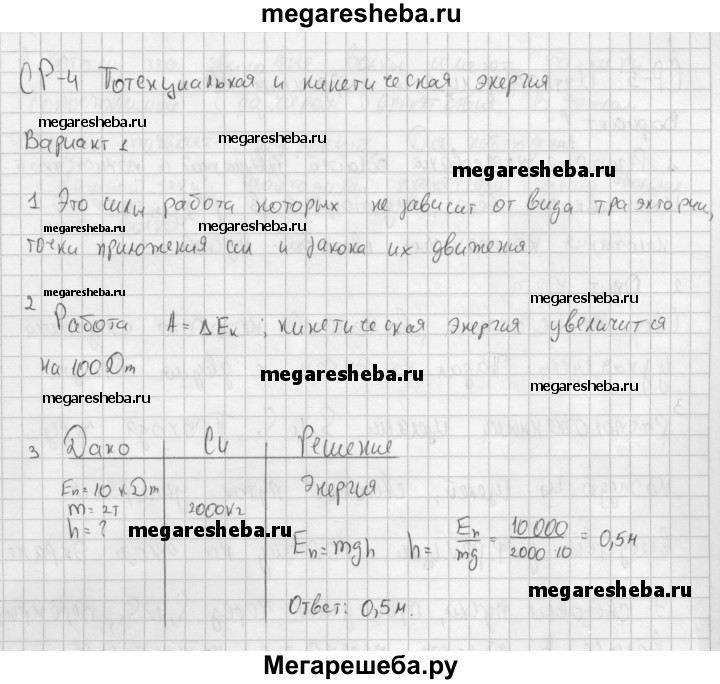 megaresheba.ru
СР-4 Потенциальная и кинетическая энергия
megaresheba.ru
megaresheba.ru
Вариант 1
megaresheba.ru
1 Это силы работа которых не зависит от вида траэктории,
megaresheba.ru
megaresheba.ru
точки приложения сил и закона их движения.
megaresheba.ru
megaresheba.ru
2 Работа A = ΔEк ; кинетическая энергия увеличится
на 100 Дж
megaresheba.ru
megaresheba.ru
megaresheba.ru
3 Дано Си Решение
Eп = 10 кДж Энергия
m = 2т 2000кг
h = ?
megaresheba.ru
Eп = mgh h = Eп/mg = 10 000/2000·10 = 0,5м
megaresheba.ru
Ответ: 0,5 м.
Мегарешеба.ру